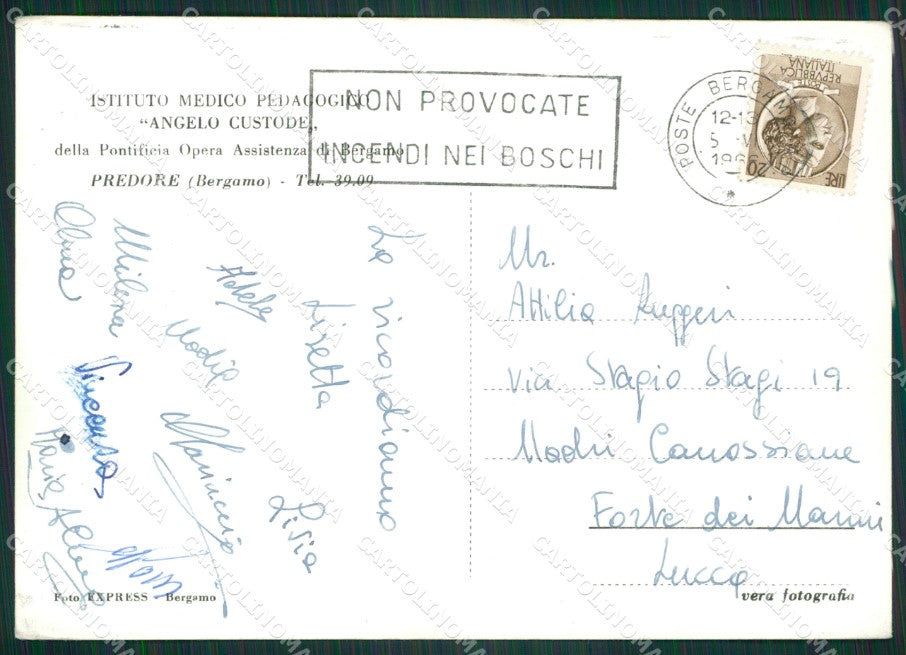 ISTITUTO MEDICO PEDAGOGICO
"ANGELO CUSTODE„
della Pontificia Opera Assistenza di Bergamo
PREDORE (Bergamo) - Tel. 39.09
NON PROVOCATE
INCENDI NEI BOSCHI
POSTE BERGAM
12-13
5
196
REPVBBLICA
ITALIANA
LIRE 20
La ricordiamo
Lisetta
Lisia
Adele
Nadia
Milena
Anna
Vincenza
Maria
Mr.
Attilia Ruggeri
Via Stagio Stagi 19
Madri Canossiane
Forte dei Marmi
Lucca
Foto EXPRESS - Bergamo
vera fotografia
CARTOLINOMANIA